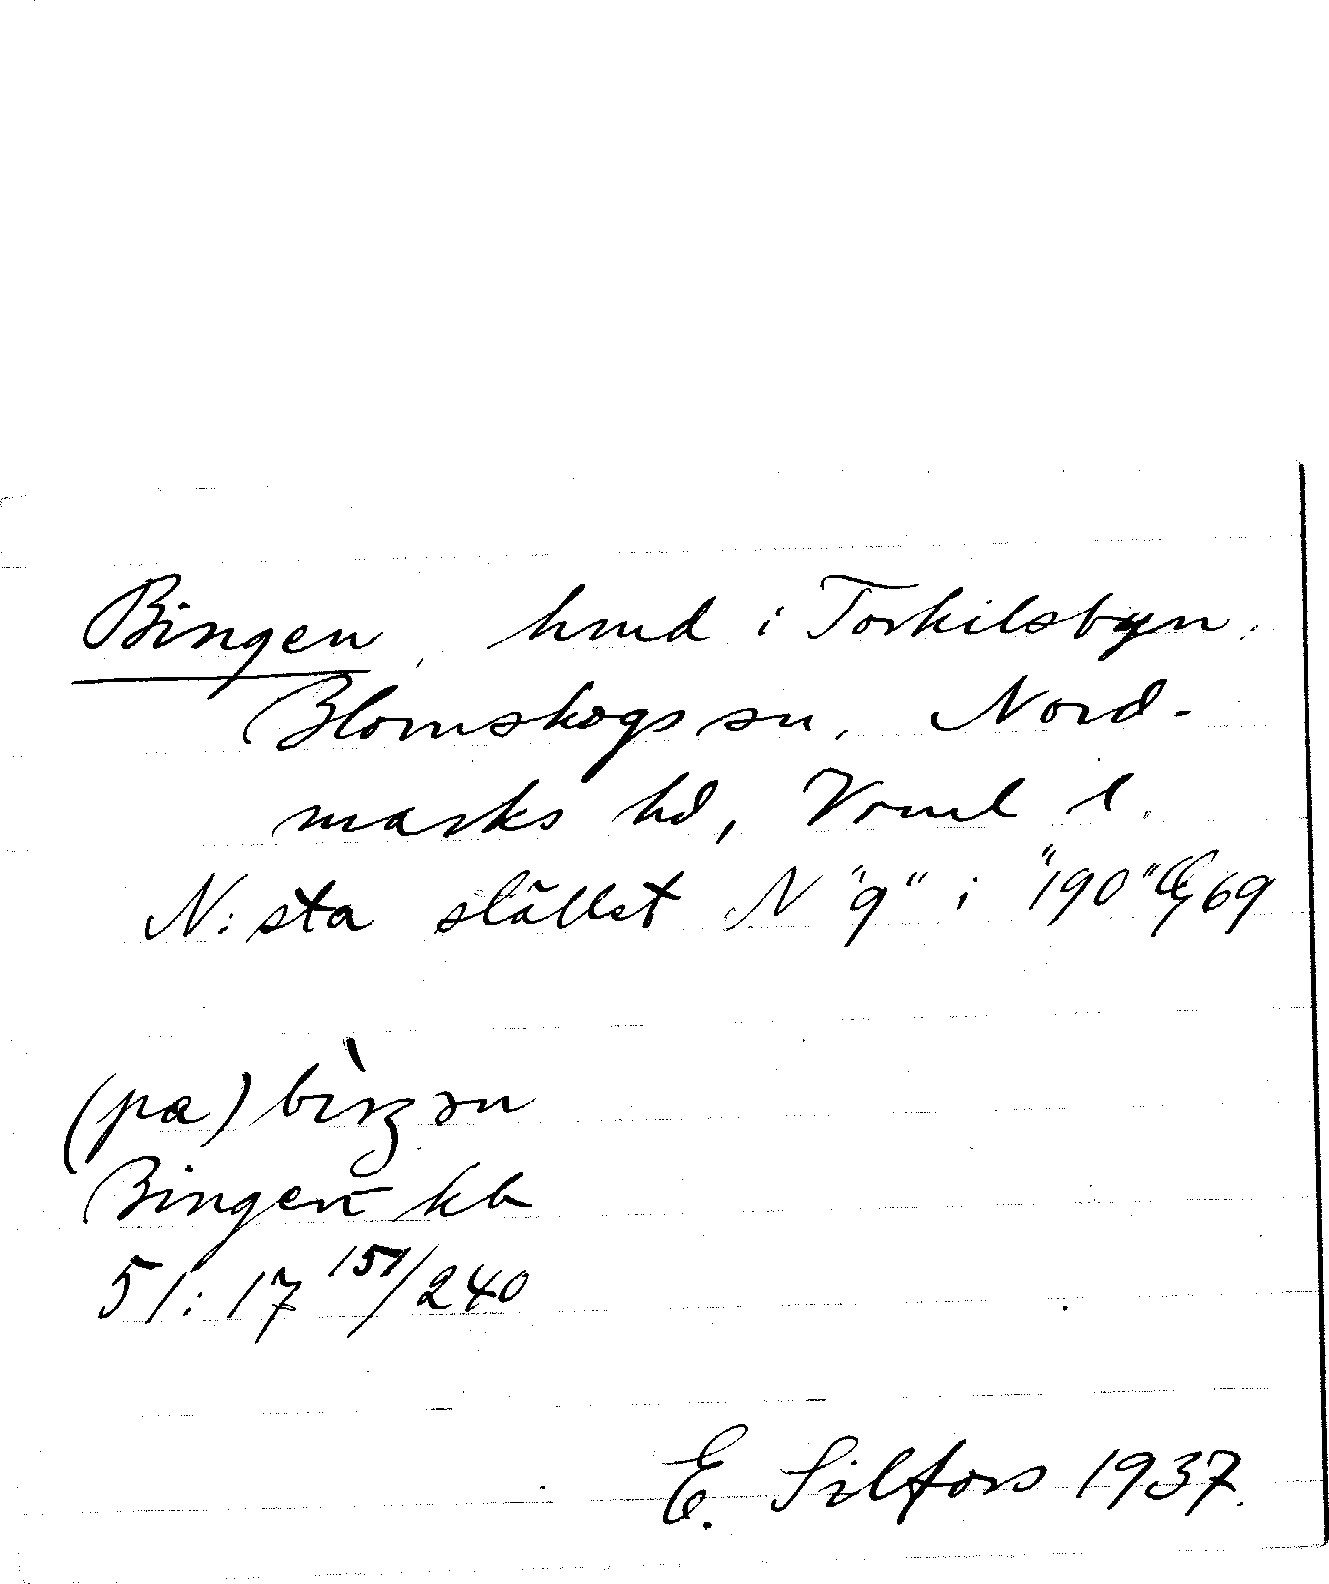 Bingen, hmd i Torkilsbyn,
Blomskogs sn, Nord-
marks hd, Vrml l.
N:sta stället N "9" i "190" 69
(pa) bìŋən
Bingen kb
51:17 151/240
E. Silfors 1937.